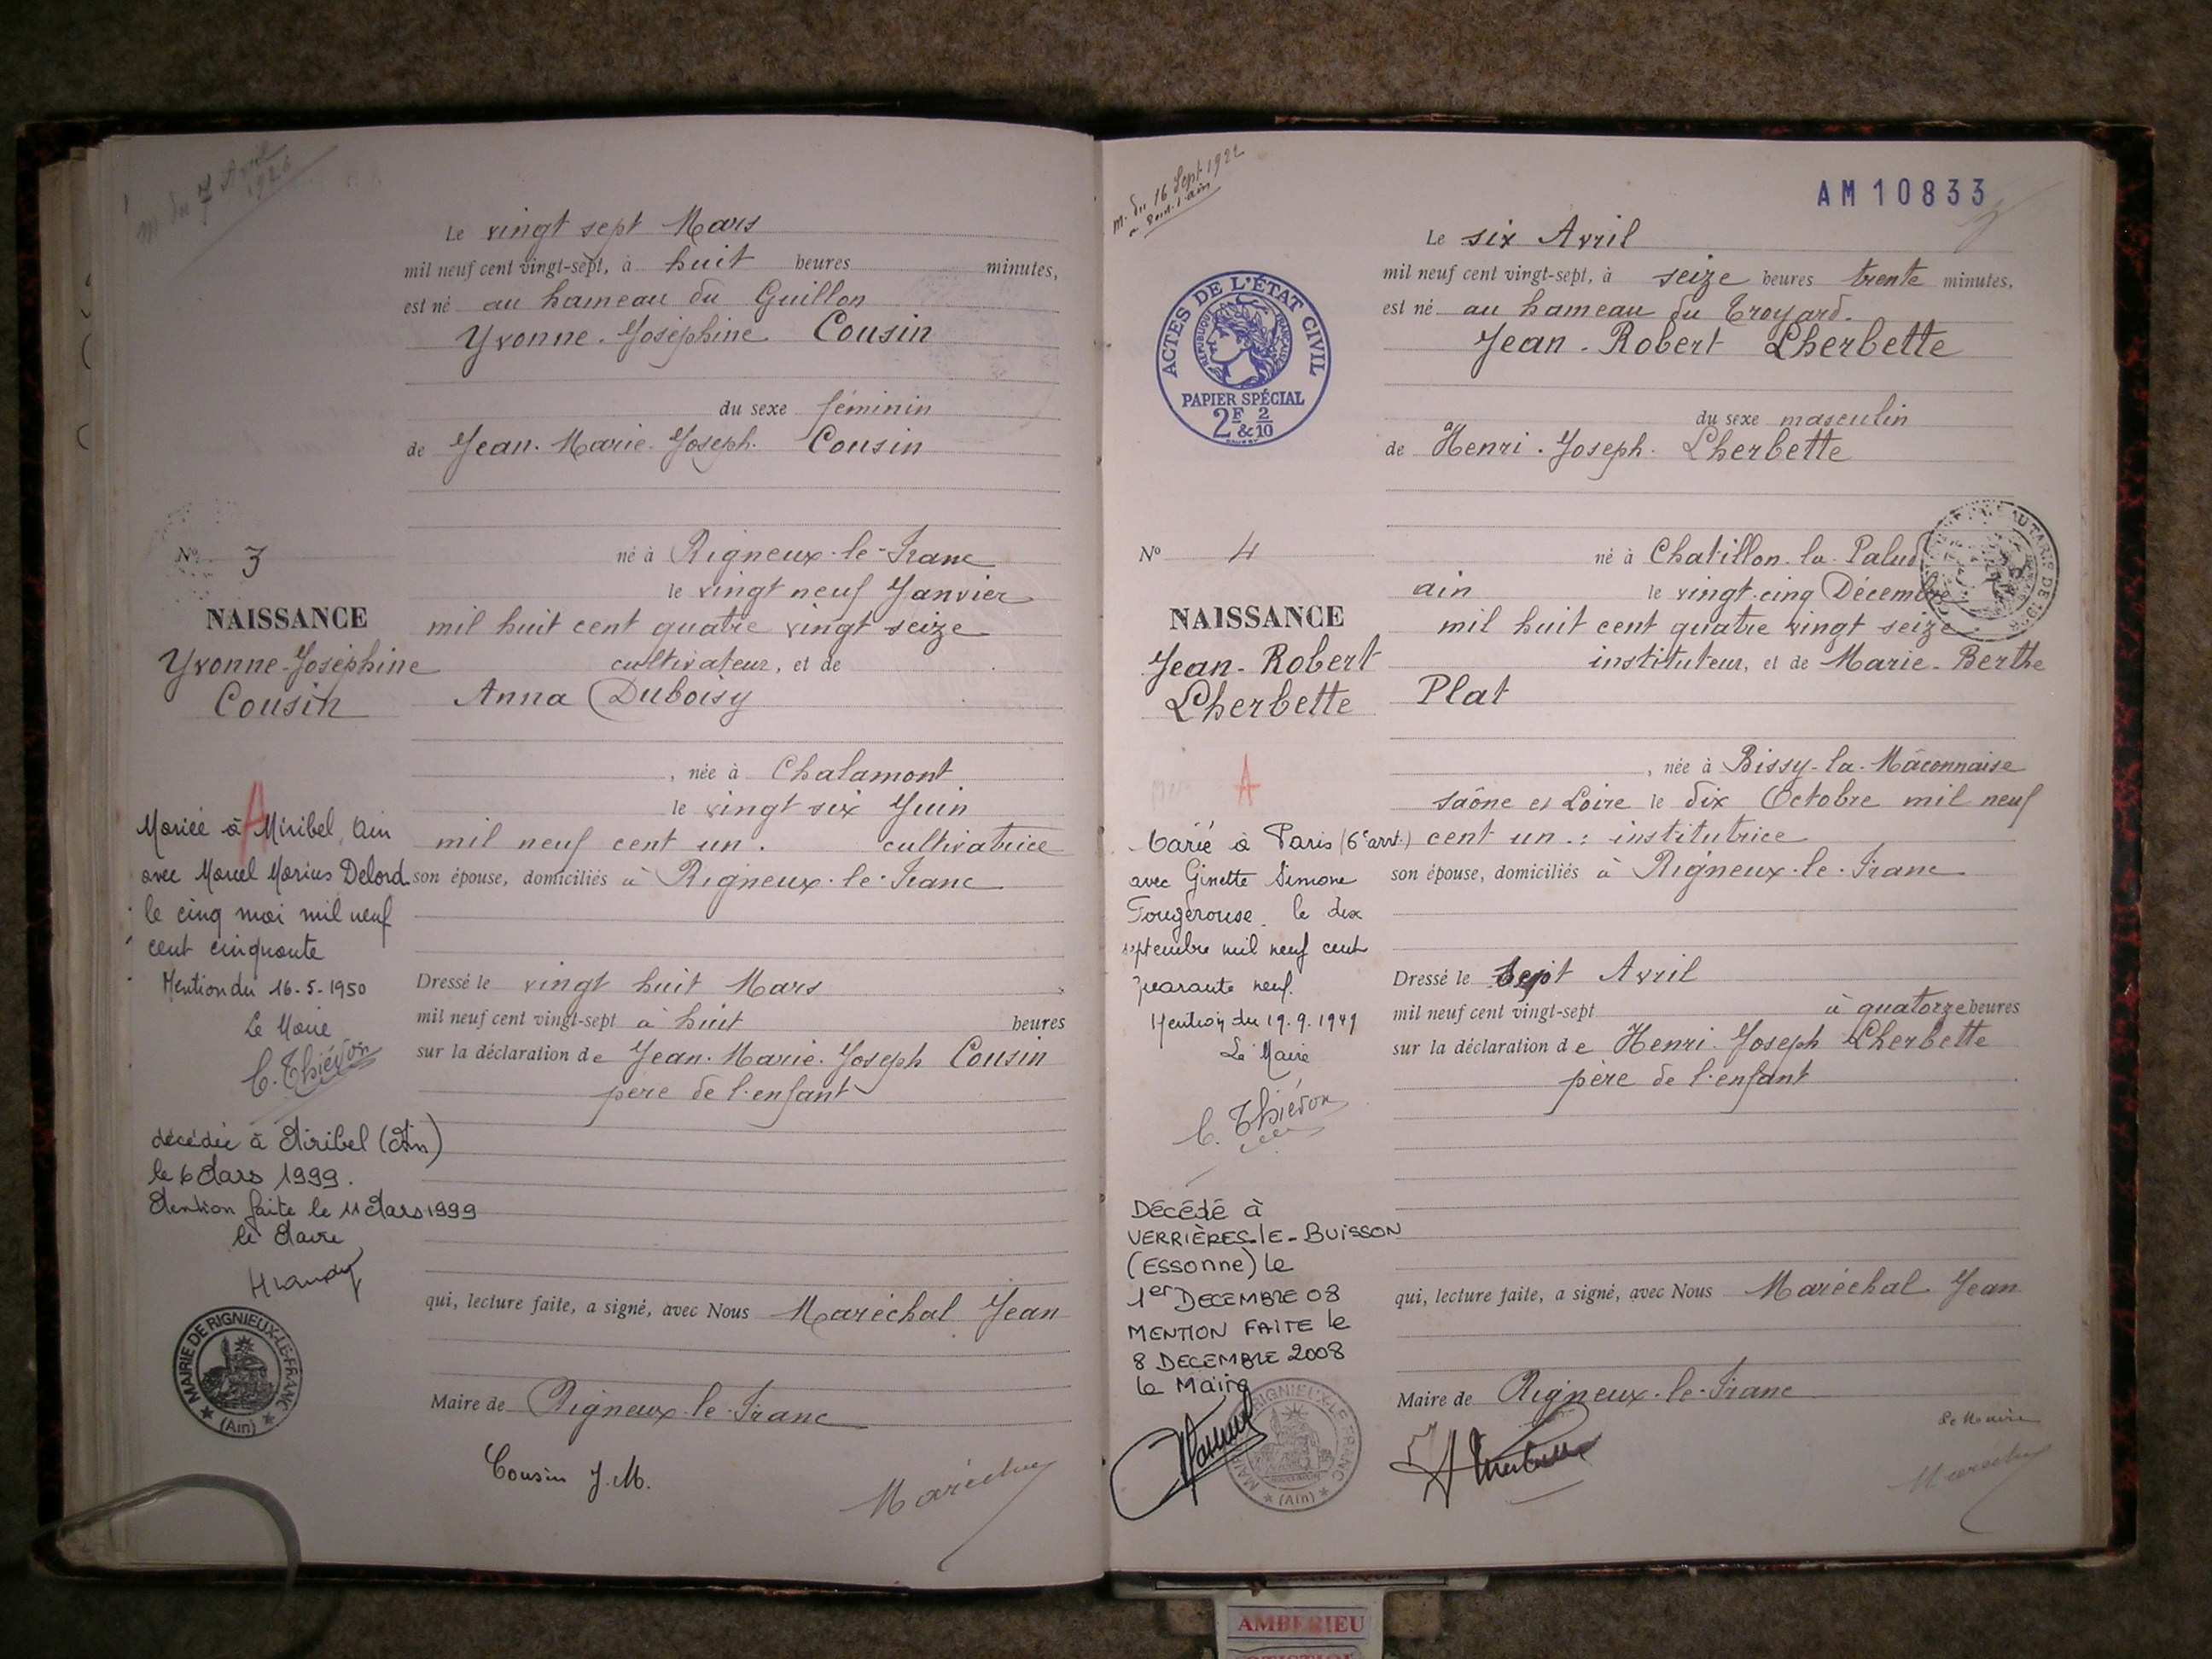 m. du 7 Avril
1926
Le vingt sept Mars
mil neuf cent vingt-sept, à huit heures minutes,
est né au hameau du Guillon
Yvonne-Joséphine Cousin
du sexe féminin
de Jean-Marie-Joseph Cousin
né à Rigneux-le-Franc
le vingt neuf Janvier
mil huit cent quatre vingt seize
cultivateur, et de
Anna Duboisy
, née à Chalamont
le vingt six Juin
mil neuf cent un. cultivatrice
son épouse, domiciliés à Rigneux-le-Franc
Dressé le vingt huit Mars
mil neuf cent vingt-sept à huit heures
sur la déclaration de Jean-Marie-Joseph Cousin
père de l'enfant
qui, lecture faite, a signé, avec Nous Maréchal Jean
Maire de Rigneux-le-Franc
Cousin J.M.
Maréchal
No 3
NAISSANCE
Yvonne-Joséphine
Cousin
A
Mariée à Miribel, Ain
avec Marcel Marius Delord
le cinq mai mil neuf
cent cinquante
Mention du 16-5-1950
Le Maire
C. Thiévon
décédée à Miribel (Ain)
le 6 Mars 1999.
Mention faite le 11 Mars 1999
le Maire
MAIRIE DE RIGNIEUX-LE-FRANC
(Ain)
m. du 16 Sept 1922
a Pont-d'ain
AM10833
ACTES DE L'ÉTAT CIVIL
RÉPUBLIQUE FRANÇAISE
PAPIER SPÉCIAL
2F & 2/10
Le six Avril
mil neuf cent vingt-sept, à seize heures trente minutes,
est né au hameau du Troyard.
Jean-Robert Lherbette
du sexe masculin
de Henri-Joseph Lherbette
né à Chatillon-la-Palud
ain le vingt-cinq Décembre
mil huit cent quatre vingt seize
instituteur, et de Marie-Berthe
Plat
, née à Bissy-la-Mâconnaise
Saône et Loire le dix Octobre mil neuf
cent un.: institutrice
son épouse, domiciliés à Rigneux-le-Franc
Dressé le Sept Avril
mil neuf cent vingt-sept à quatorze heures
sur la déclaration de Henri-Joseph Lherbette
père de l'enfant
qui, lecture faite, a signé, avec Nous Maréchal Jean
Maire de Rigneux-le-Franc
Le Maire
Maréchal
No 4
NAISSANCE
Jean-Robert
Lherbette
A
Marié à Paris (6e arrt.)
avec Ginette Simone
Fougerouse le dix
septembre mil neuf cent
quarante neuf.
Mention du 19.9.1949
Le Maire
C. Thiévon
DÉCÉDÉ à
VERRIÈRES-lE-BUISSON
(ESSONNE) le
1er DECEMBRE 08
MENTION FAITE le
8 DECEMBRE 2008
le Maire
MAIRIE DE RIGNIEUX-LE-FRANC
(Ain)
AMBERIEU